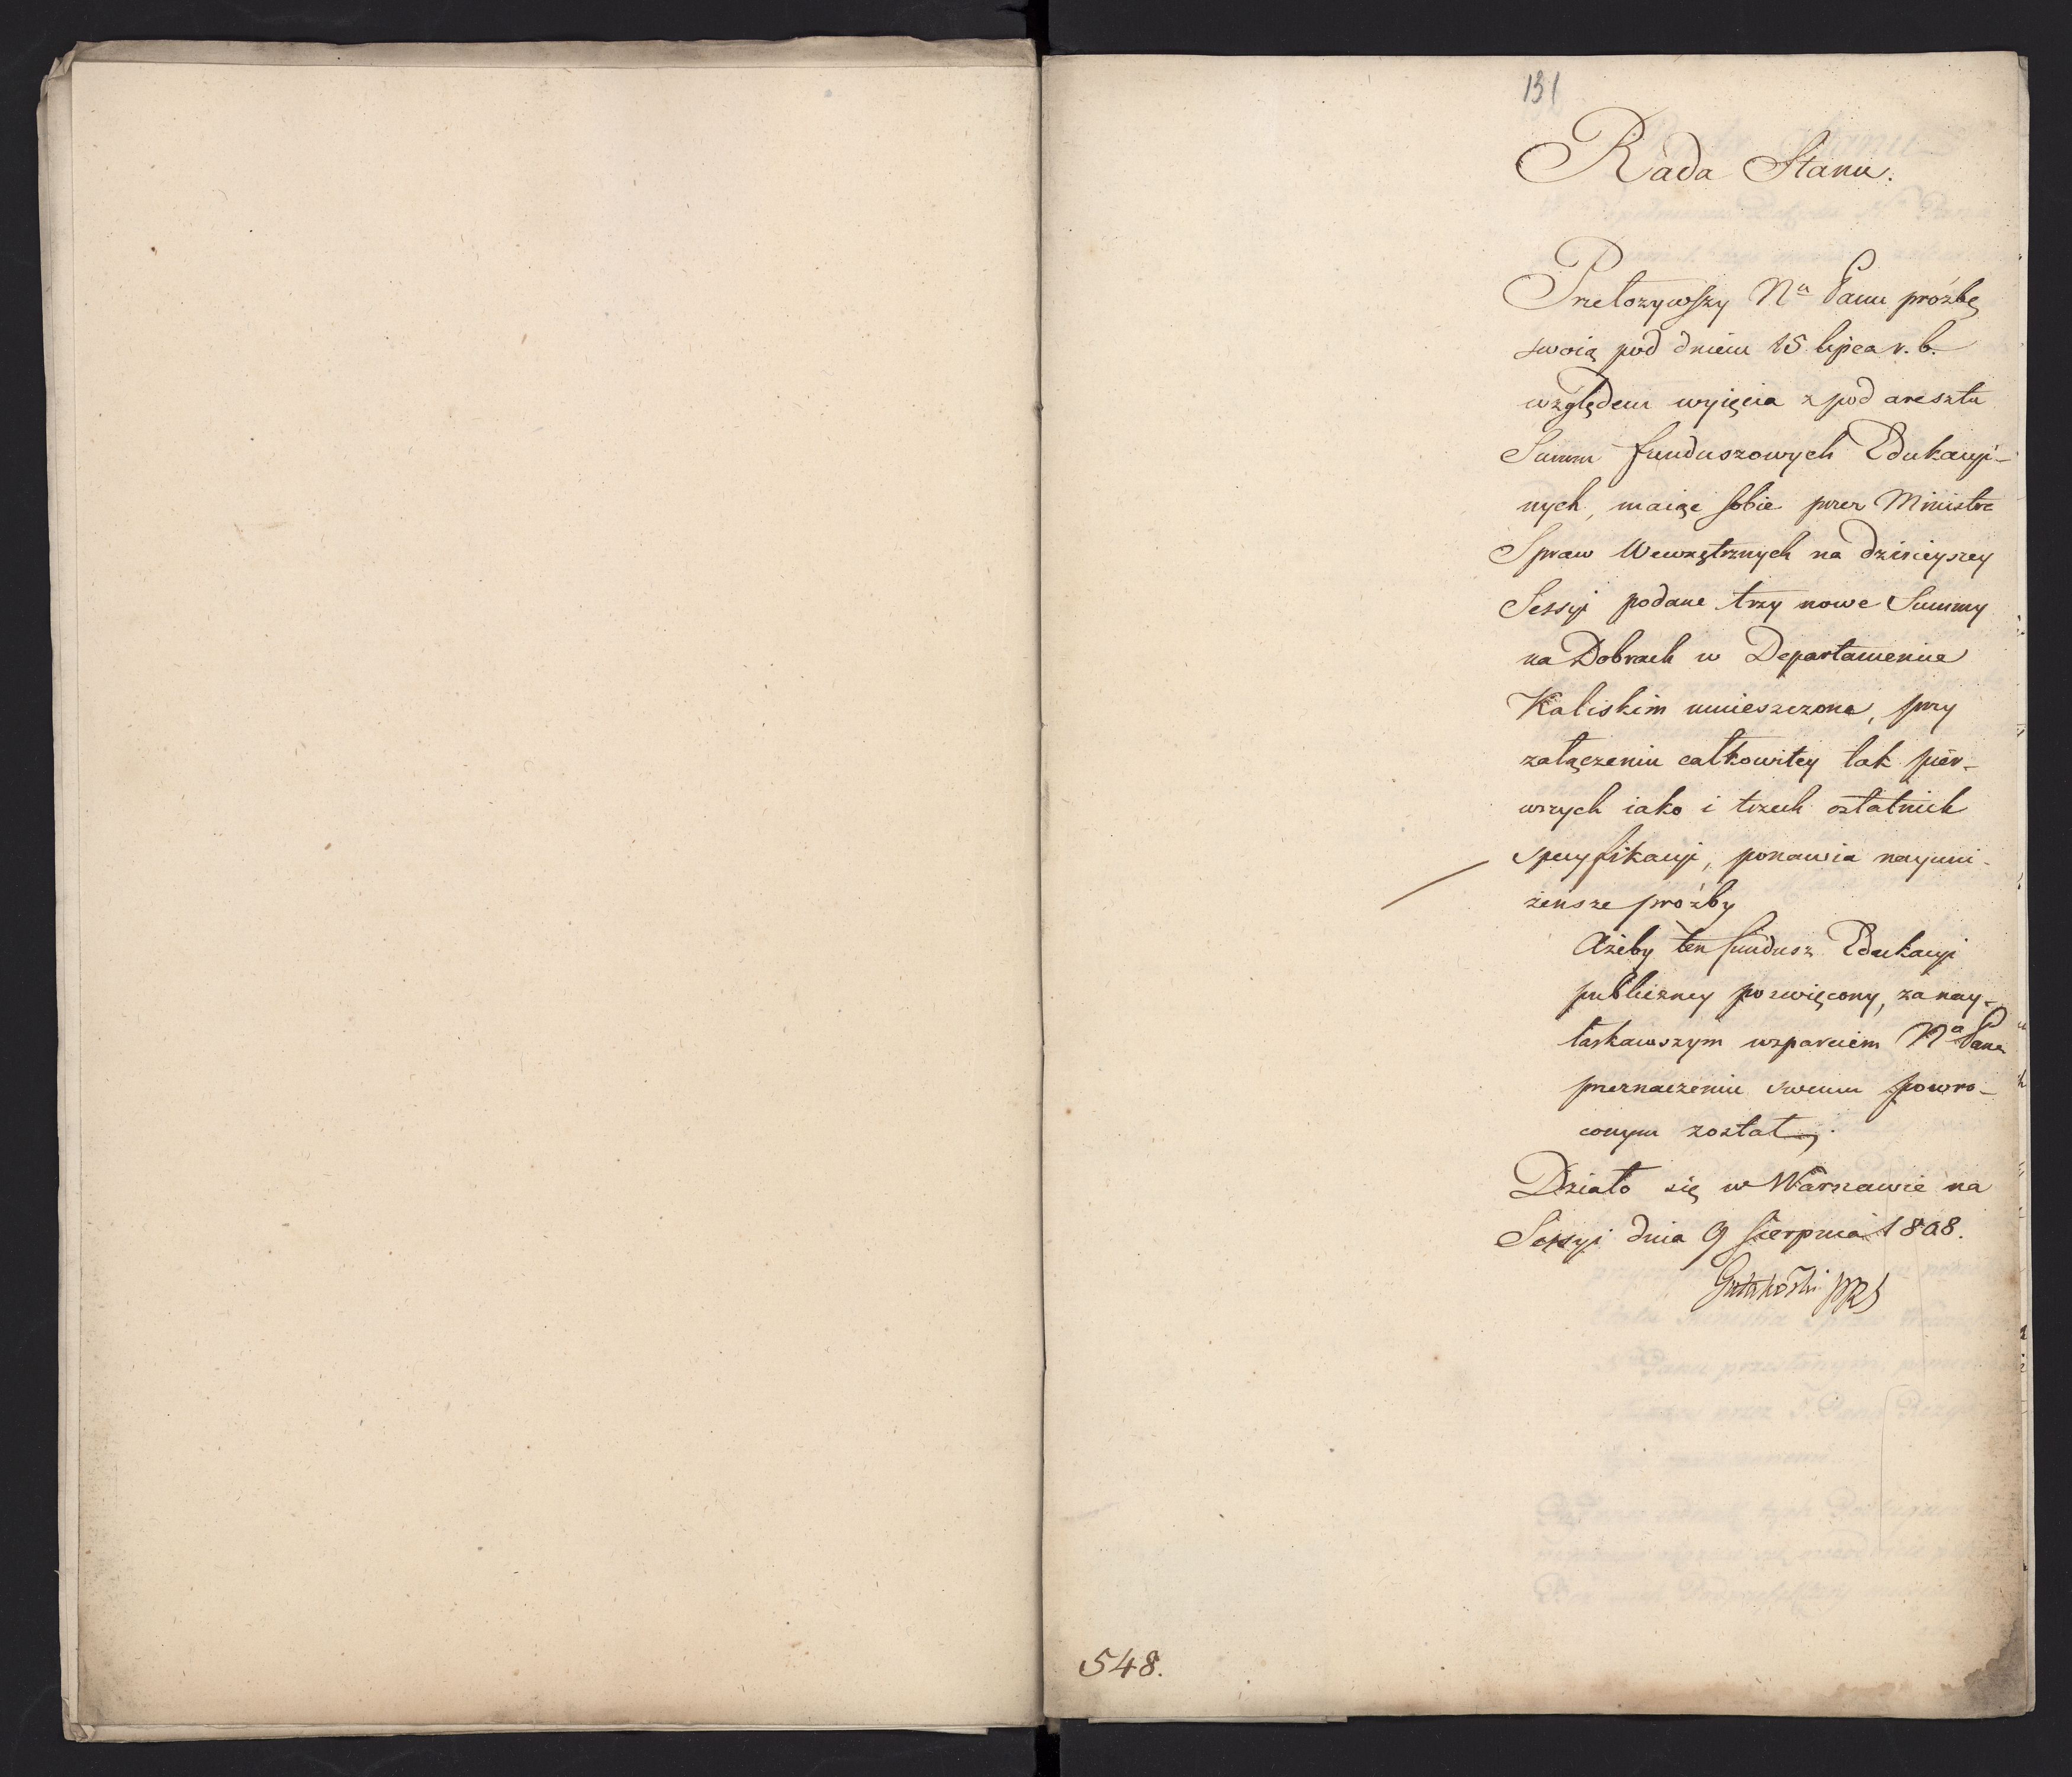 131
Rada Stanu.
Przełożywszy Nu Panu prózbę
swoią pod dniem 15 lipca r. b.
względem wyięcia z pod aresztu
Summ funduszowych Edukacyi-
nych, maiąc sobie przez Ministra
Spraw Wewnętrznych na dzisieyszey
Sessyi podane trzy nowe Summy
na Dobrach w Departamencie
Kaliskim umieszczone, przy
załączeniu całkowitey tak pier-
wszych iako i trzech ostatnich
specyfikacyi, ponawia nayuni-
żensze prózby
Ażeby ten fundusz Edukacyi
publiczney poswięcony, za nay-
łaskawszym wsparciem Na Pana
przeznaczeniu swemu powro-
conym został.
Działo się w Warszawie na
Sessyi dnia 9 Sierpnia 1808.
Gutakowski PRS
548.